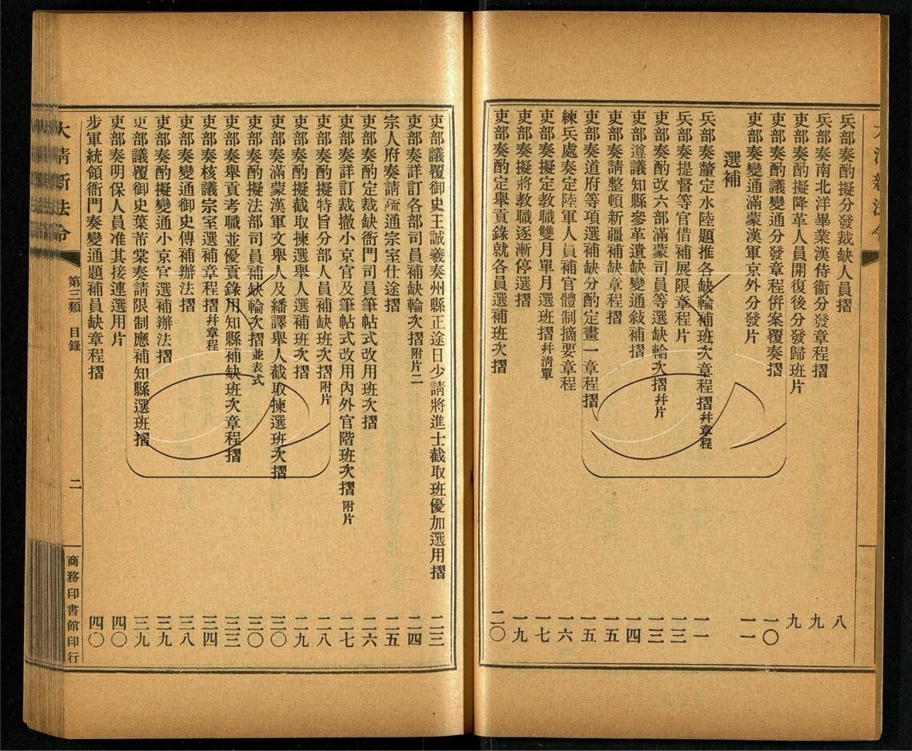 兵部奏酌擬分發裁缺人員摺 八
兵部奏南北洋畢業漢侍衞分發章程摺 九
吏部奏酌擬降革人員開復後分發歸班片 九
吏部奏酌議變通分發章程併案覆奏摺 一〇
吏部奏變通滿蒙漢軍京外分發片 一一
選補
兵部奏釐定水陸題推各缺輪補班次章程摺 幷章程 一一
兵部奏提督等官借補展限章程片 一三
吏部奏酌改六部滿蒙司員等選缺輪次摺 幷片 一三
吏部遵議知縣參革遺缺變通敍補摺 一四
吏部奏請整頓新疆補缺章程摺 一五
吏部奏道府等項選補缺分酌定畫一章程摺 一五
練兵處奏定陸軍人員補官體制摘要章程 一六
吏部奏擬定教職雙月單月選班摺 幷淸單 一七
吏部奏擬將教職逐漸停選摺 一九
吏部奏酌定舉貢錄就各員選補班次摺 二〇
吏部議覆御史王誠羲奏州縣正途日少請將進士截取班優加選用摺 二三
吏部奏詳訂各部司員補缺輪次摺 附片二 二四
宗人府奏請疏通宗室仕途摺 二五
吏部奏酌定裁缺衙門司員筆帖式改用班次摺 二六
吏部奏詳訂裁撤小京官及筆帖式改用內外官階班次摺 附片 二七
吏部奏酌擬特旨分部人員補缺班次摺 附片 二八
吏部奏酌擬截取揀選舉人選補班次摺 二九
吏部奏滿蒙漢軍文舉人及繙譯舉人截取揀選班次摺 三〇
吏部奏酌擬法部司員補缺輪次摺 並表式 三〇
吏部奏舉貢考職並優貢錄用知縣補缺班次章程摺 三三
吏部奏核議宗室選補章程摺 幷章程 三四
吏部奏變通御史傳補辦法摺 三八
吏部奏酌擬變通小京官選補辦法摺 三九
吏部議覆御史葉芾棠奏請限制應補知縣選班摺 三九
吏部奏明保人員准其接連選用片 四〇
步軍統領衙門奏變通題補員缺章程摺 四〇
大淸新法令
第三類 目錄
二
商務印書館印行